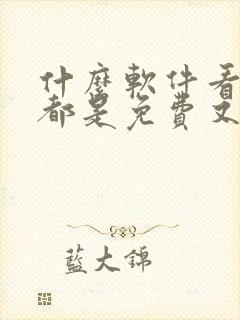 什麼軟件看
都是免費又
藍大錦